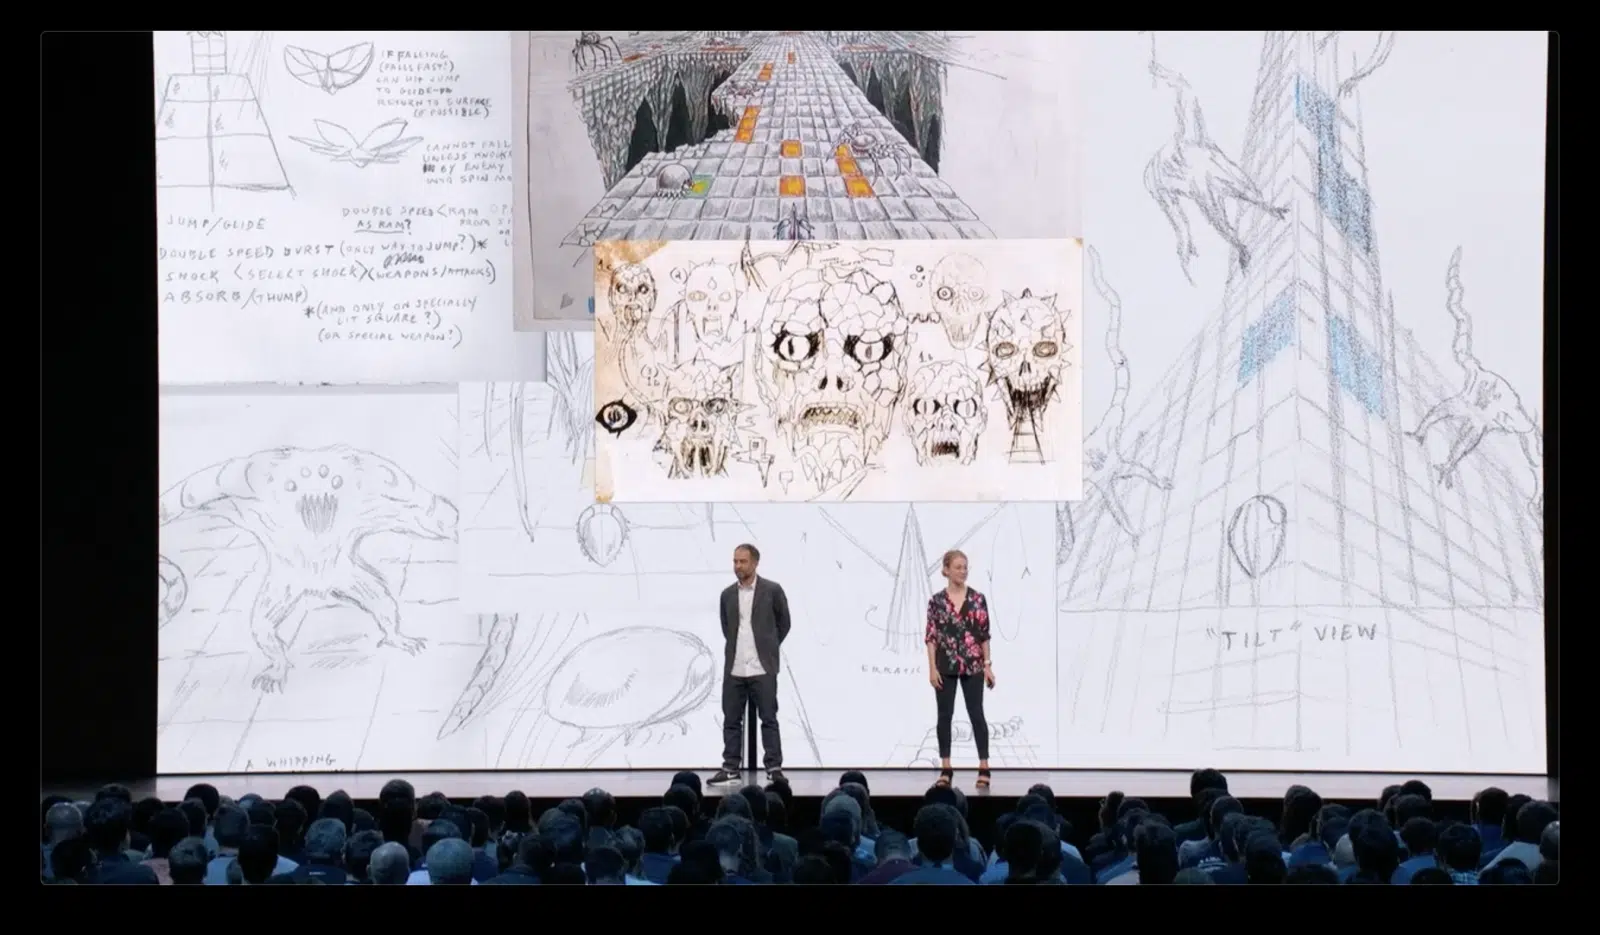 IF FALLING
(FALLS FAST!)
CAN HIT JUMP
TO GLIDE
RETURN TO SURFACE
(IF POSSIBLE)
CANNOT FALL
UNLESS
BY ENEMY
INTO SPIN
JUMP/GLIDE
DOUBLE SPEED
RAM
AS RAM?
FROM
DOUBLE SPEED BURST (ONLY WAY TO JUMP?)*
SHOCK <SELECT SHOCK>(WEAPONS/ATTACKS)
ABSORB/(THUMP)
*(AND ONLY ON SPECIALLY
LIT SQUARE?)
(OR SPECIAL WEAPON?)
ERRATIC
"TILT" VIEW
A WHIPPING